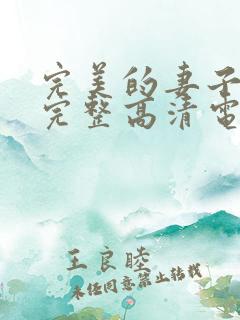 完美的妻子
完整高清电
王良睦
未经同意禁止转载